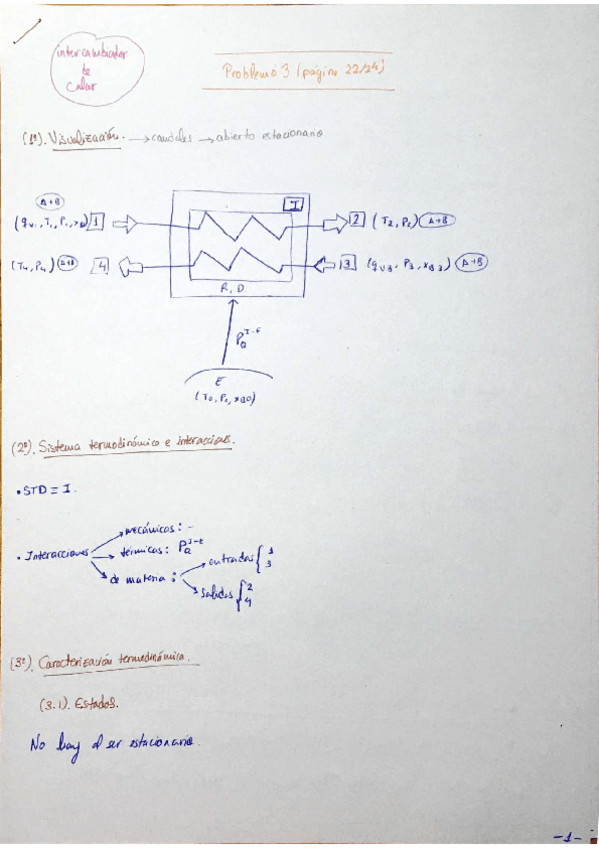 intercambiador
de
Calor
Problema 3 (página 22/24)
(1º). Visualización. → caudales → abierto estacionario
A+B
I
(qv1, T1, P1, xB) 1
2 (T2, P2) A+B
(T4, P4) A+B 4
3 (qv3, P3, xB3) A+B
R, D
PQ^I-E
E
(T0, P0, xB0)
(2º). Sistema termodinámico e interacciones.
• STD ≡ I.
mecánicas: -
• Interacciones
térmicas: PQ^I-E
de materia:
entradas { 1
3
Salidas { 2
4
(3º). Caracterización termodinámica.
(3.1). Estados.
No hay al ser estacionario.
-1-